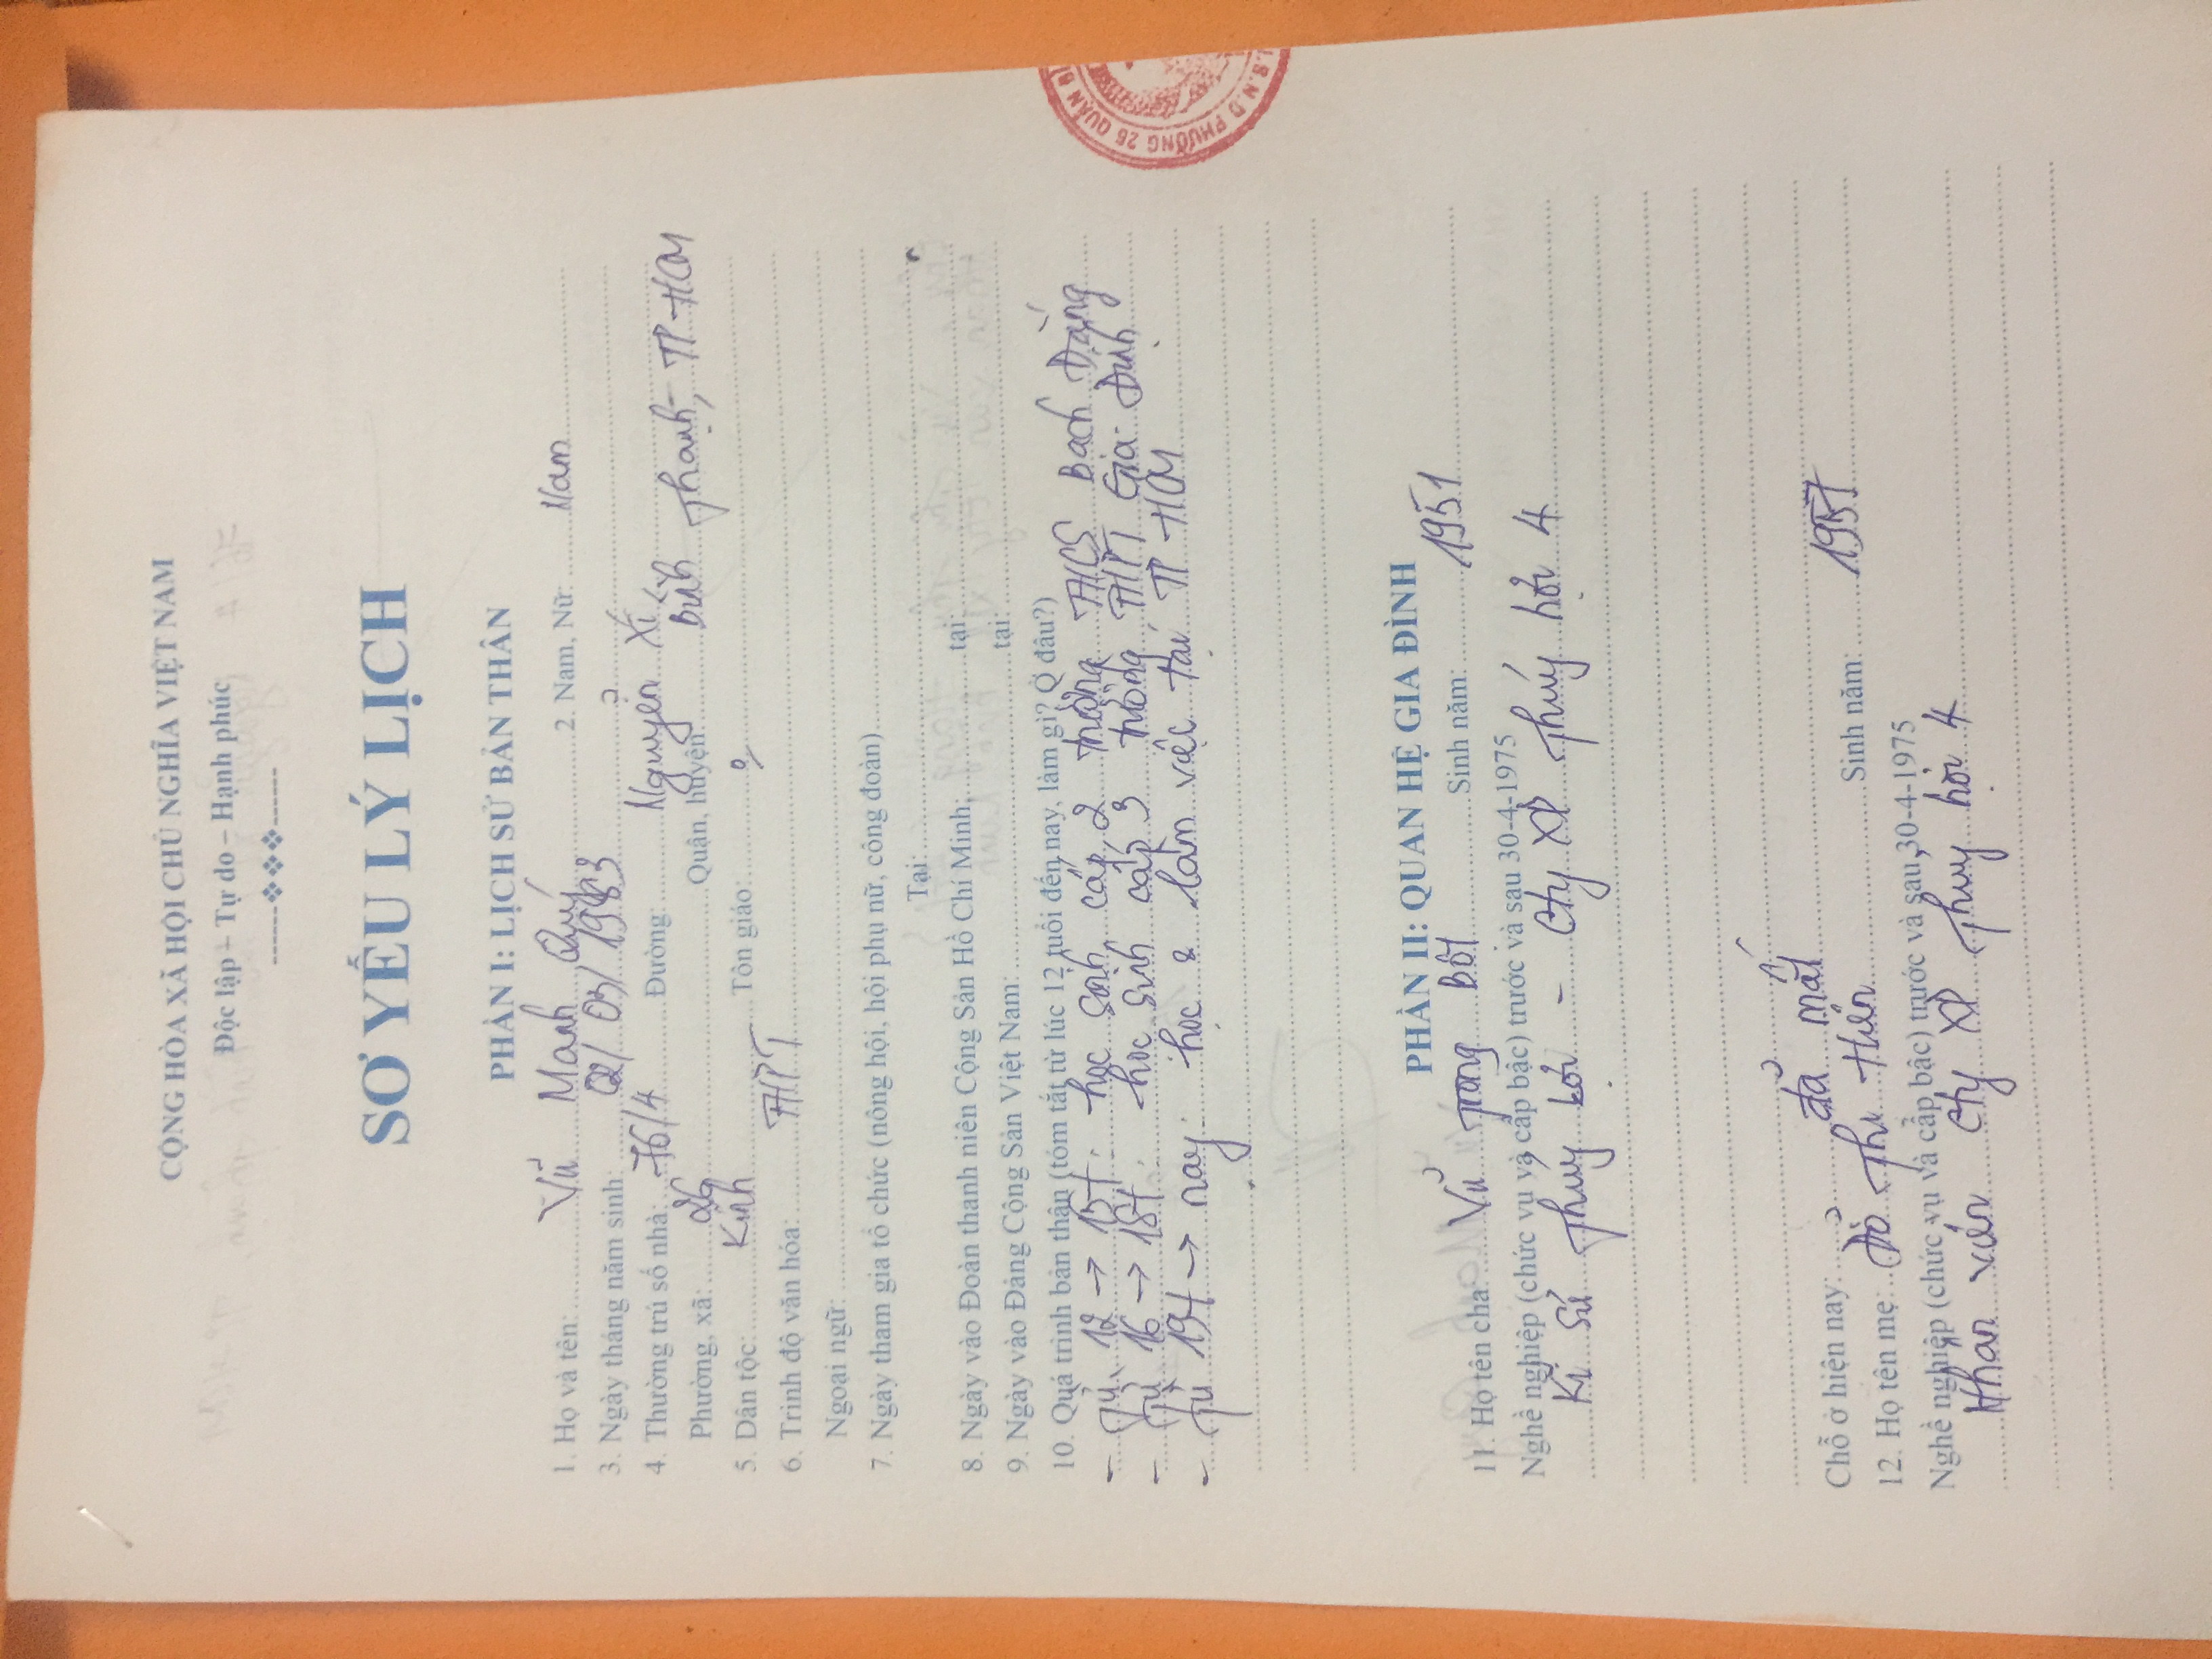 CỘNG HÒA XÃ HỘI CHỦ NGHĨA VIỆT NAM
Độc lập – Tự do – Hạnh phúc
SƠ YẾU LÝ LỊCH
PHẦN I: LỊCH SỬ BẢN THÂN
1. Họ và tên: Vũ Mạnh Quý 2. Nam, Nữ: Nam
3. Ngày tháng năm sinh: 02/ 03/ 1983
4. Thường trú số nhà: 76/4 Đường: Nguyễn Xí
Phường, xã: 26 Quận, huyện: Bình Thạnh, TP-HCM
5. Dân tộc: Kinh Tôn giáo:
6. Trình độ văn hóa: THPT
Ngoại ngữ:
7. Ngày tham gia tổ chức (nông hội, hội phụ nữ, công đoàn)
Tại:
8. Ngày vào Đoàn thanh niên Cộng Sản Hồ Chí Minh: tại:
9. Ngày vào Đảng Cộng Sản Việt Nam: tại:
10. Quá trình bản thân (tóm tắt từ lúc 12 tuổi đến nay, làm gì? Ở đâu?)
- Từ 12 → 15t: học sinh cấp 2 trường THCS Bạch Đằng
- Từ 16 → 18t: học sinh cấp 3 trường THPT Gia Định
- Từ 19t → nay: học & làm việc tại TP-HCM
PHẦN II: QUAN HỆ GIA ĐÌNH
11. Họ tên cha: Vũ Trọng Bôi Sinh năm: 1951
Nghề nghiệp (chức vụ và cấp bậc) trước và sau 30-4-1975
Kĩ sư Thủy lợi - cty XD Thủy lợi 4
Chỗ ở hiện nay: đã mất
12. Họ tên mẹ: Đỗ Thị Hiền Sinh năm: 1957
Nghề nghiệp (chức vụ và cấp bậc) trước và sau 30-4-1975
Nhân viên cty XD Thủy lợi 4
N.D PHƯỜNG 26 QUẬN